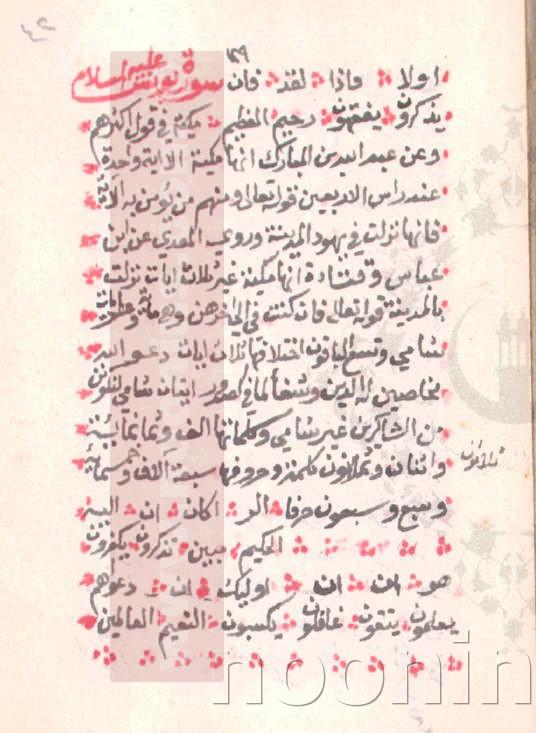 ٤٢
١٣٩
اولا فاذا لقد فان سورة يونس عليه السلام
يذكرون يفقهون رحيم العظيم مكية في قول اكثرهم
وعن عبد الله بن المبارك انها مكية الا اية واحدة
عند راس الاربعين قوله تعالى ومنهم من يؤمن به الآية
فانها نزلت في يهود المدينة وروي المعدي عن ابن
عباس وقتادة انها مكية غير ثلاث ايات نزلت
بالمدينة قوله تعالى فان كنت في الى اخرهن وهي مائة وعشر ايات
شامي وتسع الباقون اختلافها ثلاث ايات دعوا الله
مخلصين له الدين وشفا لما في الصدور اثنان شامي لنكونن
من الشاكرين غير شامي وكلماتها الف وثمانمائة
واثنان وثلاثون كلمة وحروفها سبعة آلاف وخمسمائة
وسبع وستون حرفا الر اكان ان اليه
الحكيم مبين تذكرون يكفرون
هو ان ان اوليك ان دعوهم
يعلمون يتقون غافلون يكسبون النعيم العالمين
ثلاثون
noonin